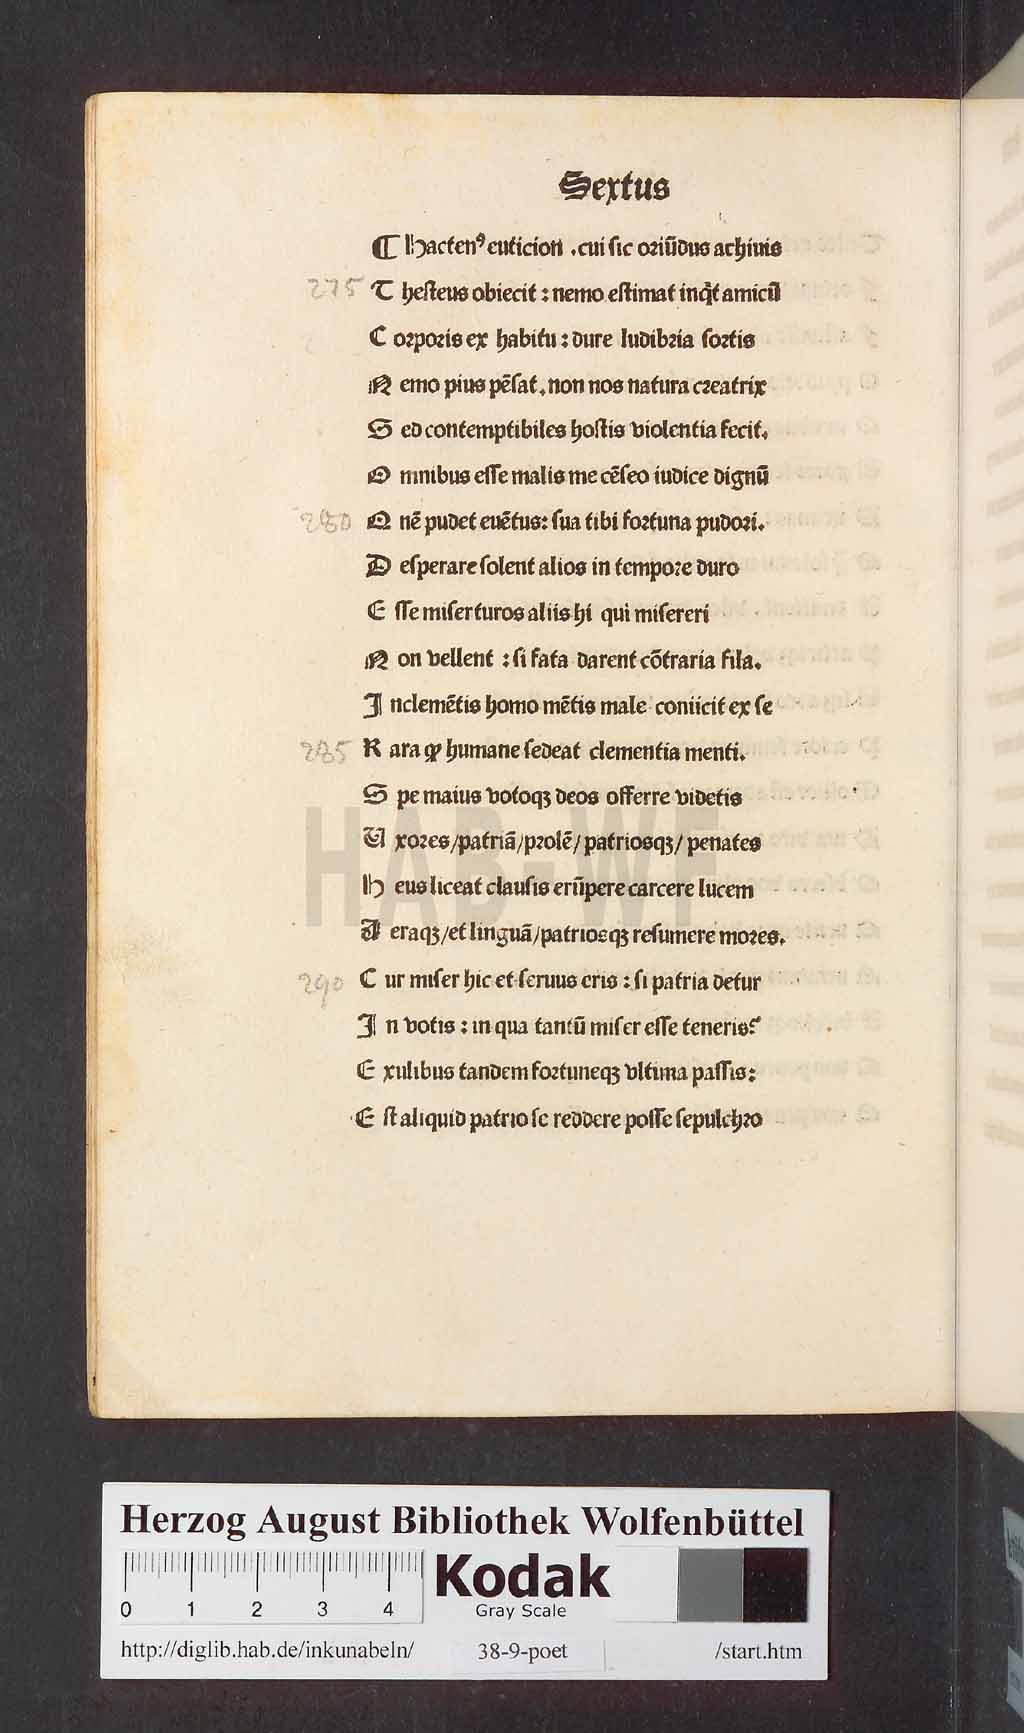 Sextus
¶ Hactenꝰ euticion .cui sic oriūdus achiuis
275 T hesteus obiecit : nemo estimat inq̇t amicū
C orporis ex habitu : dure ludibria sortis
N emo pius pēsat. non nos natura creatrix
S ed contemptibiles hostis violentia fecit.
O mnibus esse malis me cēseo iudice dignū
280 Q nē pudet euētus: sua tibi fortuna pudori.
D esperare solent alios in tempore duro
E sse miserturos aliis hi qui misereri
N on vellent : si fata darent cōtraria fila.
I nclemētis homo mētis male coniicit ex se
285 R ara ꝙ humane sedeat clementia menti.
S pe maius votoqꝫ deos offerre videtis
U xores/patriā/prolē/ patriosqꝫ/ penates
H eus liceat clausis erūpere carcere lucem
A eraqꝫ/et linguā/patriosqꝫ resumere mores.
290 C ur miser hic et seruus eris : si patria detur
I n votis : in qua tantū miser esse teneris?
E xulibus tandem fortuneqꝫ vltima passis:
E st aliquid patrio se reddere posse sepulchro
HAB-WF
Herzog August Bibliothek Wolfenbüttel
0 1 2 3 4
Kodak
Gray Scale
http://diglib.hab.de/inkunabeln/ 38-9-poet /start.htm